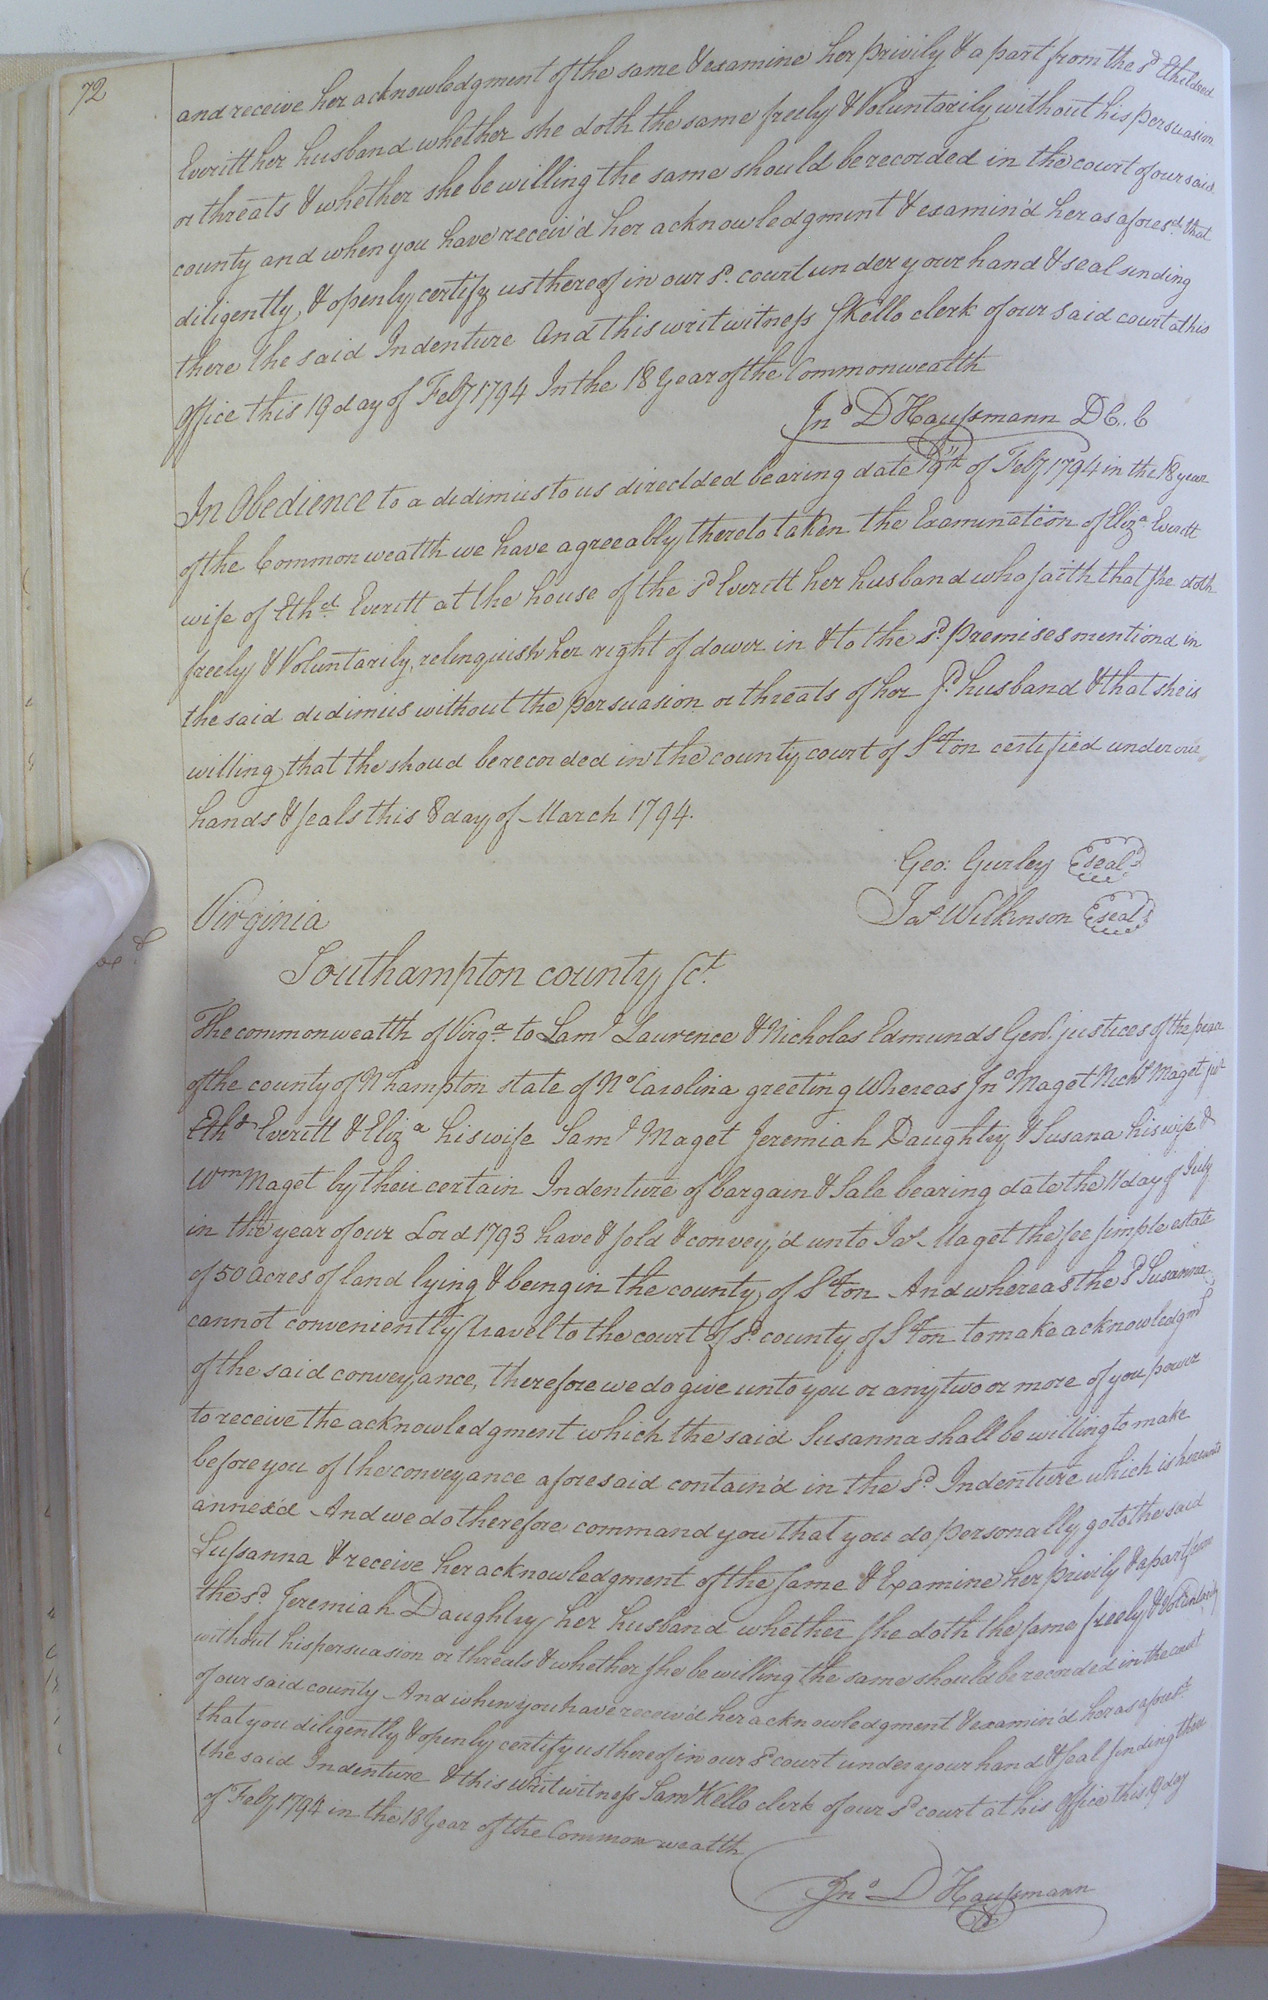 72
and receive her acknowledgment of the same & examine her privily & a part from the sd Etheldred
Everitt her husband whether she doth the same freely & Voluntarily without his persuasion
or threats & whether she be willing the same should be recorded in the court of our said
county and when you have receiv'd her acknowledgment & examin'd her as aforesd. that
diligently & openly certify us thereof in our sd. court under your hand & seal sending
there the said Indenture And this writ witness S Kello clerk of our said court at his
office this 19 day of Feby 1794 In the 18 Year of the Commonwealth
Jno D Haussmann D C.. C
In Obedience to a didimus to us direcded bearing date 19th of Feby 1794 in the 18 year
of the Commonwealth we have agreeably thereto taken the Examination of Eliza Everitt
wife of Ethd Everitt at the house of the sd Everitt her husband who saith that she doth
freely & Voluntarily relinquish her right of dower in & to the sd. premises mentiond in
the said didimus without the persuasion or threats of her sd. husband & that she is
willing that the shoud be recorded in the county court of S'ton certified under our
hands & seals this 8 day of March 1794.
Geo: Gurley seal
Jas Wilkinson seal
Virginia
Southampton county sct.
The commonwealth of Virga to Saml Laurence & Nicholas Edmunds Gent. justices of the peace
of the county of N hampton state of No Carolina greeting Whereas Jno Maget Nichs Maget jur
Ethd Everitt & Eliza his wife Saml Maget Jeremiah Daughtry & Susana his wife &
Wm Maget by their certain Indenture of bargain & Sale bearing date the 11 day of July
in the year of our Lord 1793 have & sold & convey'd unto Jas Maget the fee simple estate
of 50 acres of land lying & being in the county of S'ton And whereas the sd Susanna
cannot conveniently travel to the court of sd. county of S'ton to make acknowledgmt
of the said conveyance, therefore we do give unto you or any two or more of you power
to receive the acknowledgment which the said Susanna shall be willing to make
before you of the conveyance aforesaid contain'd in the sd. Indenture which is hereunto
annex'd And we do therefore command you that you do personally go to the said
Sussanna & receive her acknowledgment of the same & Examine her privily & apart from
the sd. Jeremiah Daughtry her husband whether she doth the same freely & Voluntarily
without his persuasion or threats & whether she be willing the same should be recorded in the court
of our said county And when you have receiv'd her acknowledgment & examin'd her as aforesd
that you diligently & openly certify us thereof in our sd court under your hand & seal sending there
the said Indenture & this writ witness Saml Kello clerk of our sd court at his Office this 19 day
of Feby 1794 in the 18 Year of the Commonwealth
Jno D Haussmann